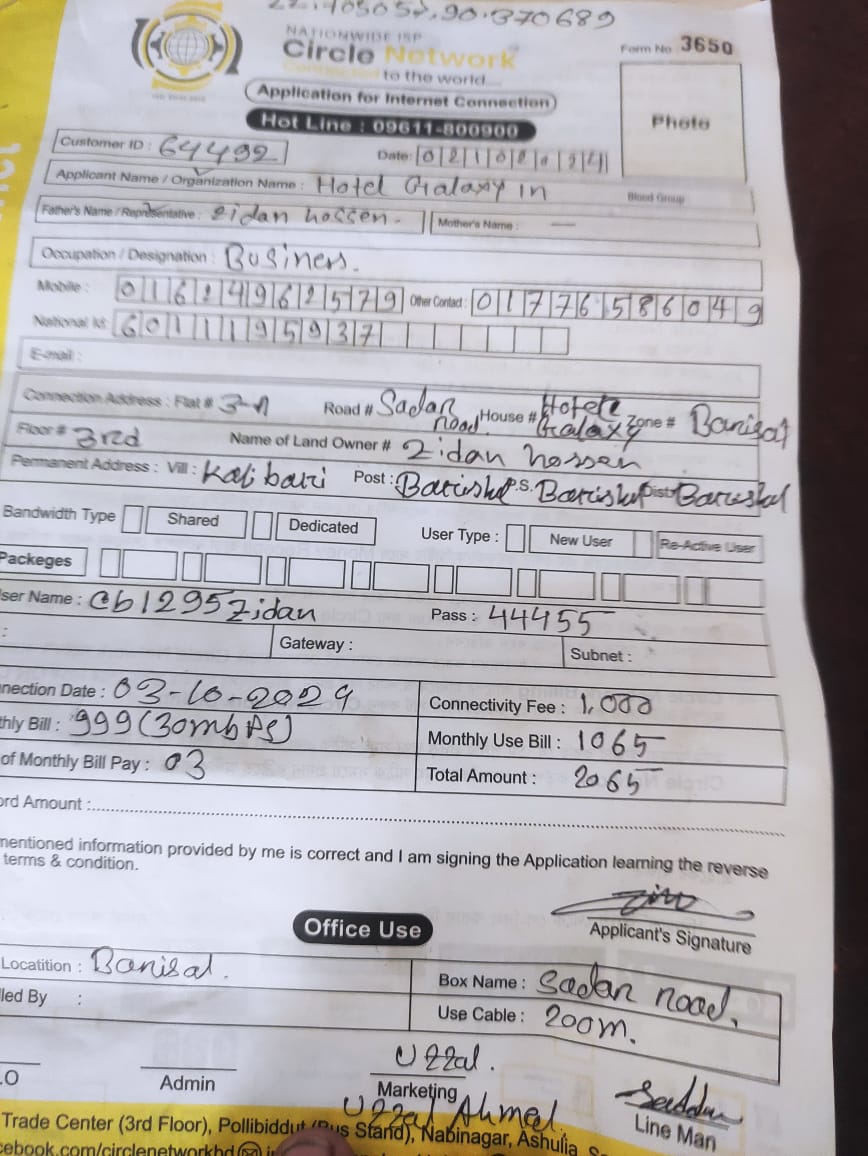 22.705057,90.370689
NATIONWIDE ISP
Circle Network
Connected to the world....
Form No 3650
Application for Internet Connection
Hot Line : 09611-800900
Photo
Customer ID : 64492
Date: 02102024
Applicant Name / Organization Name : Hotel Galaxy in
Blood Group
Father's Name / Representative : Zidan hossen - Mother's Name : —
Occupation / Designation : Business.
Mobile : 01624962579 Other Contact : 01776586049
National Id: 6011195937
E-mail :
Connection Address : Flat # 3-A Road # Sadar Road House # Hotel Galaxy Zone # Barisal
Floor # 3rd Name of Land Owner # Zidan hossen
Permanent Address : Vill : Kali bari Post : Barishal P.S. Barishal Dist: Barishal
Bandwidth Type Shared Dedicated User Type : New User Re-Active User
Packeges
ser Name : cb1295zidan Pass : 44455
: Gateway : Subnet :
nection Date : 03-10-2024 Connectivity Fee : 1,000
thly Bill : 999 (30mbps) Monthly Use Bill : 1065
of Monthly Bill Pay : 03 Total Amount : 2065
ord Amount :
mentioned information provided by me is correct and I am signing the Application learning the reverse
terms & condition.
Applicant's Signature
Office Use
Locatition : Barisal. Box Name : Sadar road,
led By : Use Cable : 200m.
.O Admin Uzzal. Marketing Line Man
Uzzal Ahmed
Trade Center (3rd Floor), Pollibiddut (Bus Stand), Nabinagar, Ashulia
cebook.com/circlenetworkbd